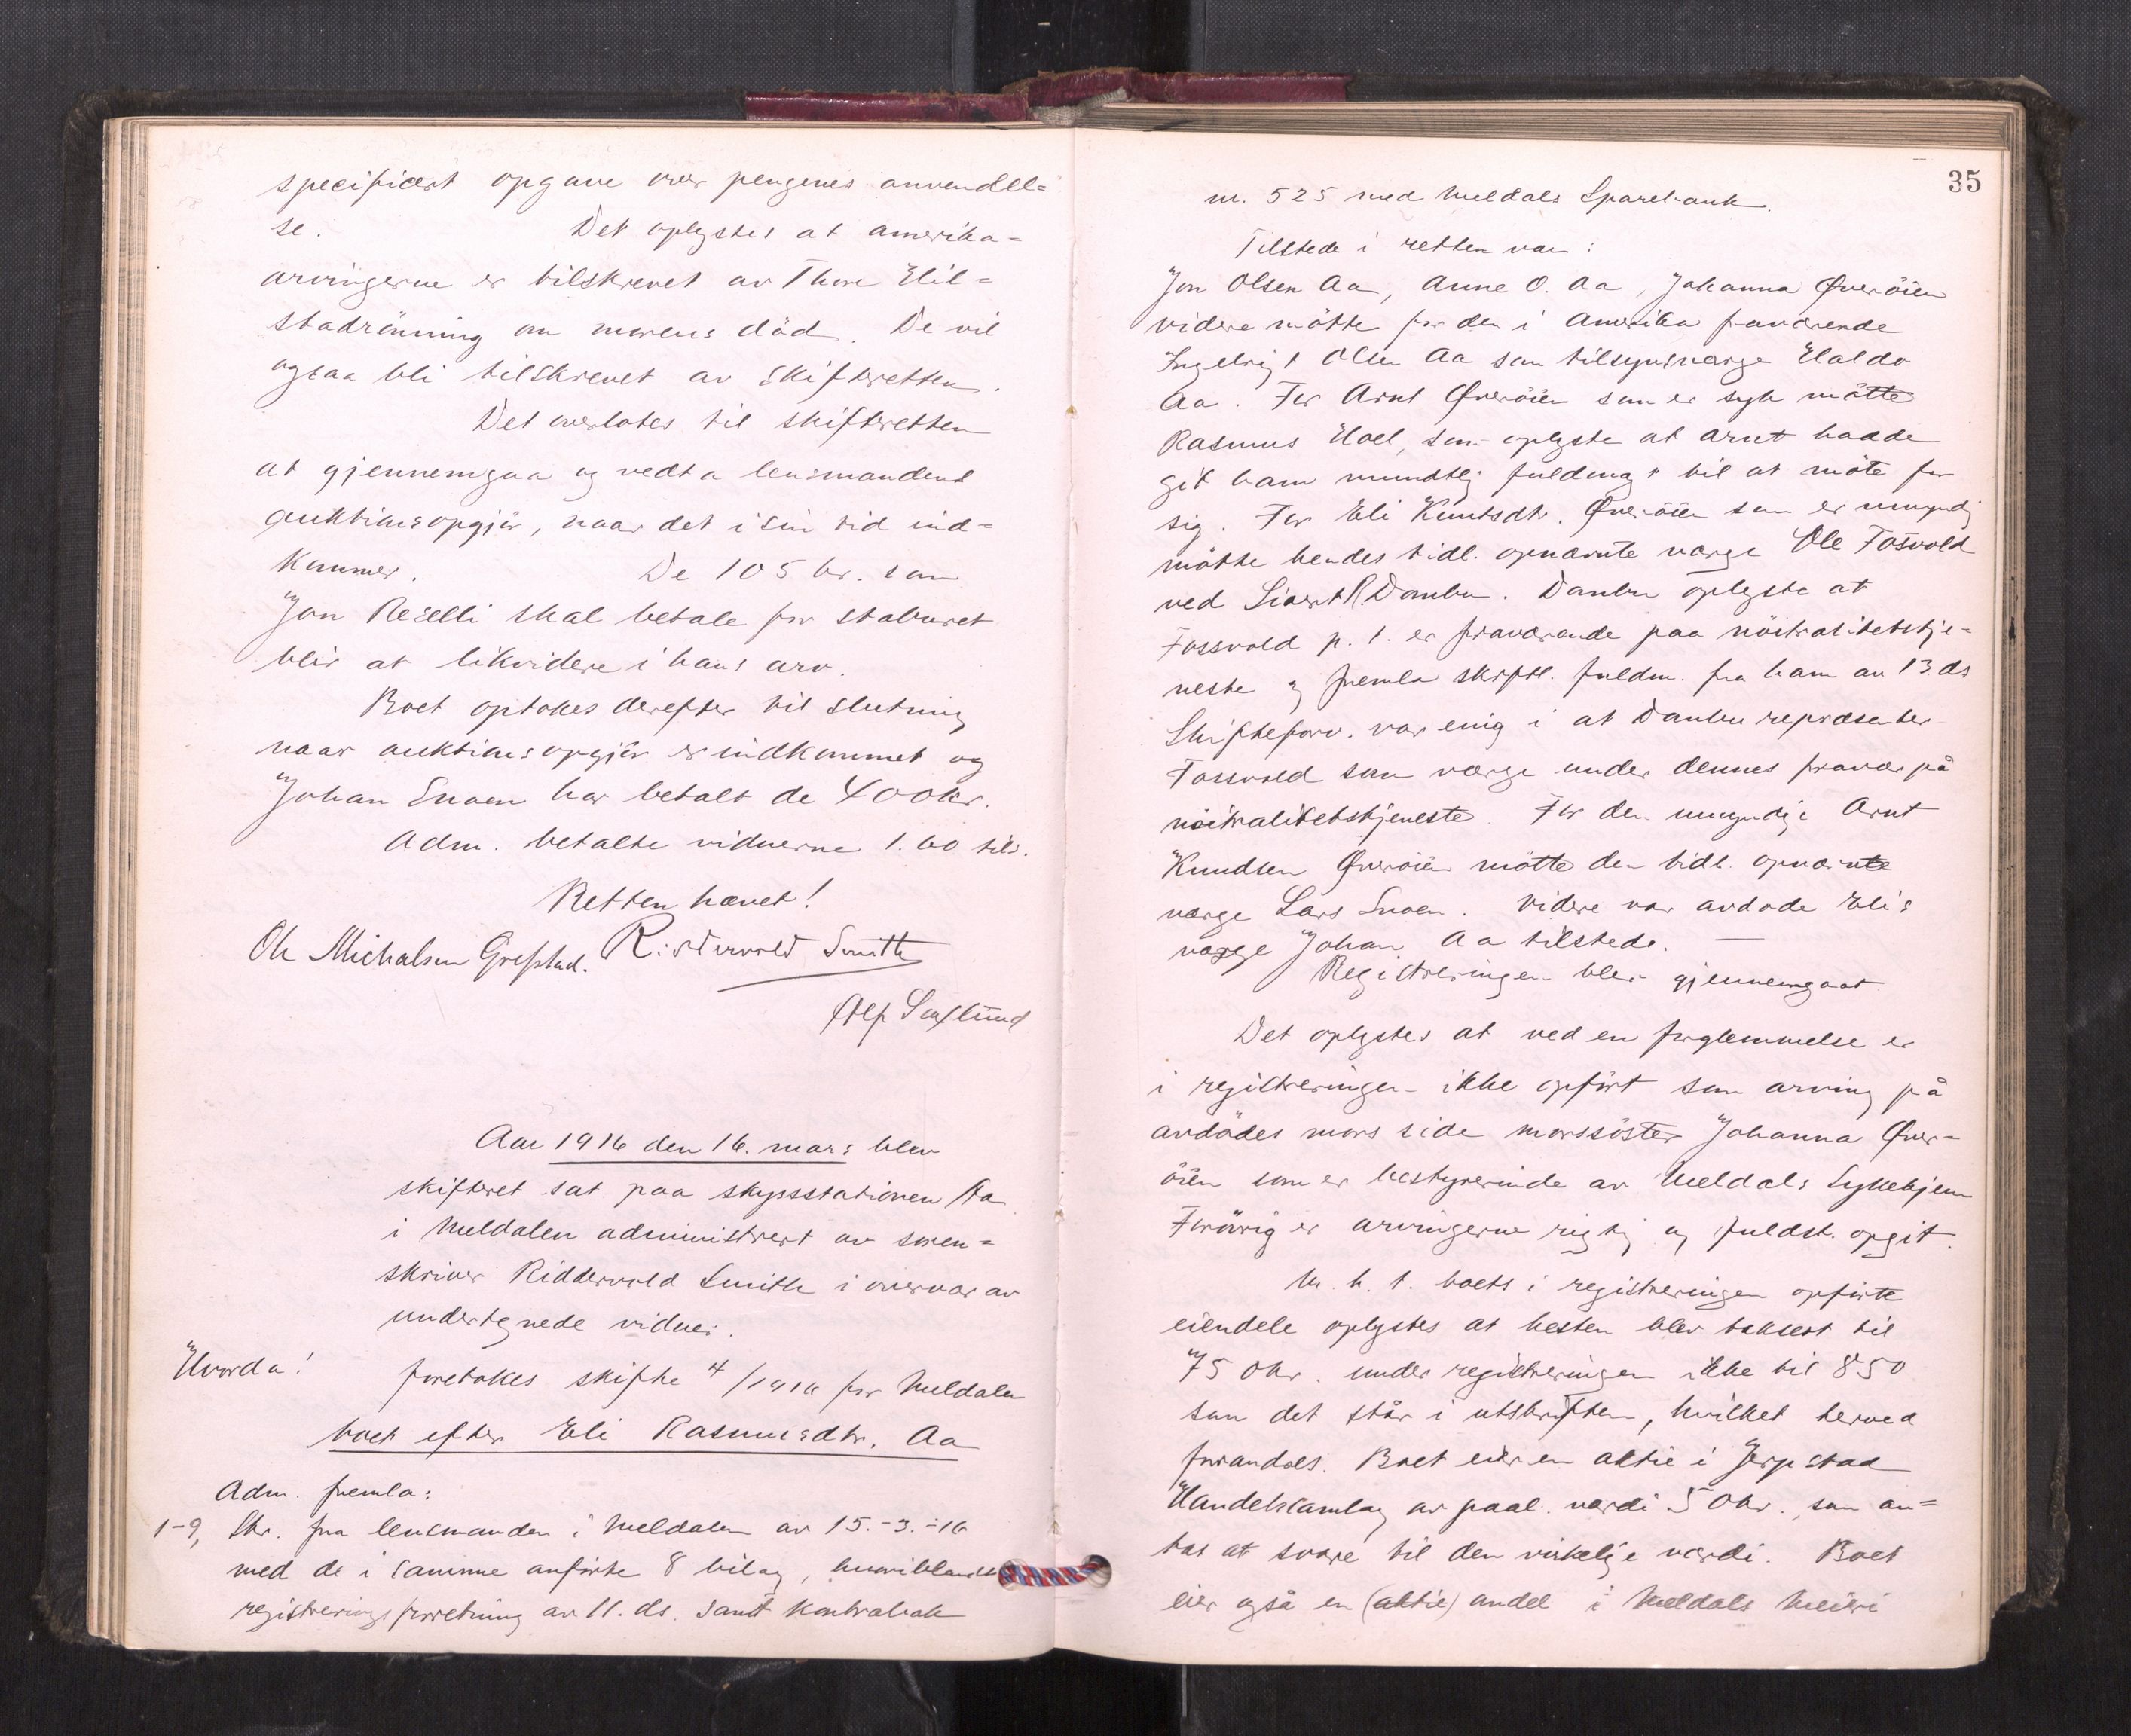 specificert opgave over pengenes anvendel=
se. Det oplystes at amerika=
arvingerne er tilskrevet av Thore Hil=
stadrönning om morens död. De vil
ogsaa bli tilskrevet av skifteretten.
Det overlotes til skifteretten
at gjennemgaa og vedta lensmandens
auktionsopgjör, naar det i sin tid ind=
kommer. De 105 kr. som
Jon Reselli skal betale for staburet
blir at likvidere i hans arv.
Boet optokes derefter til slutning
naar auktionsopgjör er indkommet og
Johan Snoen har betalt de 400 kr.
Adm. betalte vidnerne 1.60 tils.
Retten hævet!
Ole Michalsen Grefstad. Ridderwold Smith
Alf
Aar 1916 den 16. mars blev
skifteret sat paa skysstationen Aa
i Meldalen administrert av soren=
skriver Riddervold Smith i overvær av
undertegnede vidner.
Hvorda! foretokes skifte 4/1916 for Meldalen
boet efter Eli Rasmusdtr. Aa
Adm. fremla:
1-9, Skr. fra lensmanden i Meldalen av 15.-3.-16
med de i samme anförte 8 bilag, hvoriblandt
registreringsforretning av 11. ds. samt kontrabok
35
nr. 525 med Meldals Sparebank.
Tilstede i retten var:
Jon Olsen Aa, Anne O. Aa, Johanna Øveröien
videre mötte for den i Amerika fraværende
Ingebrigt Olsen Aa som tilsynsværge Haldo
Aa. For Arnt Øveröien som er syk mötte
Rasmus Hoel, som oplyste at Arnt hadde
git ham mundtlig fuldmagt til at möte for
sig. For Eli Knutsdtr. Øveröien som er umyndig
mötte hendes tidl. opnævnte værge Ole Fosvold
ved Sivert R. Dombu. Dombu oplyste at
Fossvold p. t. er fraværende paa nöitralitetstje=
neste og fremla skriftl. fuldm. fra ham av 13. ds
Skifteforv. var enig i at Dombu repræsenter
Fossvold som værge under dennes fravær på
nöitralitetstjeneste. For den umyndige Arnt
Knudsen Øveröien mötte den tidl. opnævnte
værge Lars Snoen. Videre var avdöde Eli's
værge Johan Aa tilstede. —
Registreringen blev gjennemgaat
Det oplystes at ved en forglemmelse er
i registreringen ikke opfört som arving på
avdödes mors side morssöster Johanna Øver=
öien som er bestyrerinde av Meldals Sykehjem
Forövrig er arvingerne rigtig og fuldst. opgit.
M. h. t. boets i registreringen opförte
eiendele oplystes at hesten blev taksert til
750 kr. under registreringen ikke til 850
som det står i utskriften, hvilket herved
forandres. Boet eier en aktie i Jerpstad
Handelslamlag av paal. værdi 50 kr., som an=
tas at svare til den virkelige værdi. Boet
eier også en (aktie) andel i Meldals Meieri